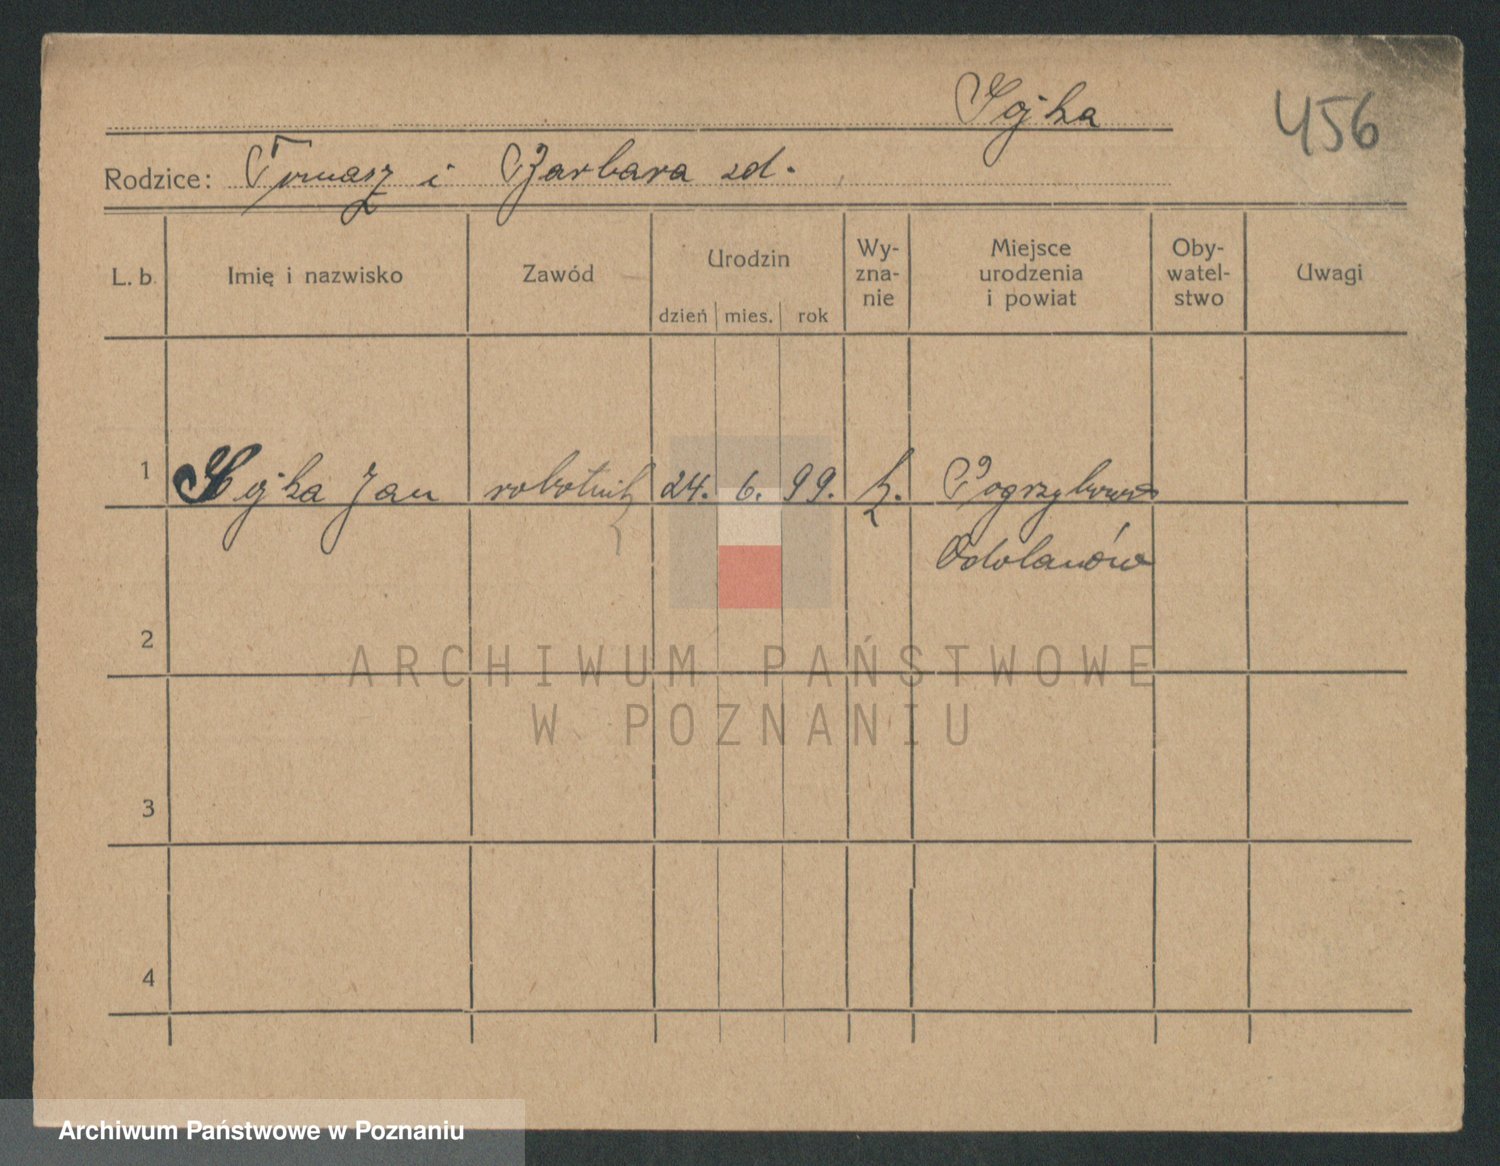 Sojka
456
Rodzice: Tomasz i Barbara zd.
L. b. Imię i nazwisko Zawód Urodzin dzień mies. rok Wy-zna-nie Miejsce urodzenia i powiat Oby-watel-stwo Uwagi
1 Sojka Jan robotnik 24. 6. 99. k. Pogrzybowo
Odolanów
2
ARCHIWUM PAŃSTWOWE
W POZNANIU
3
4
Archiwum Państwowe w Poznaniu